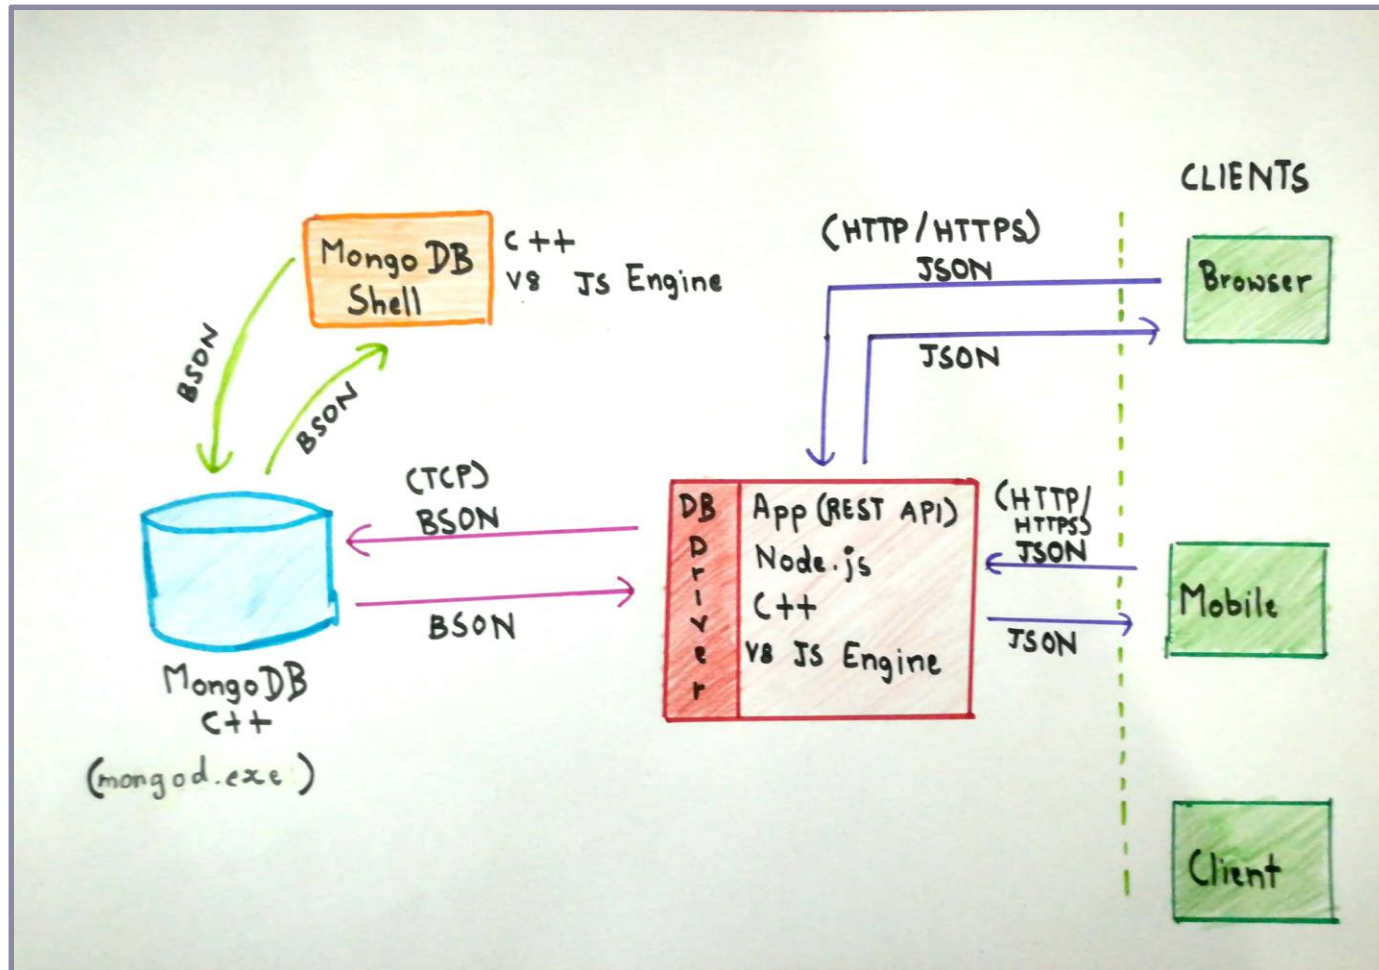 CLIENTS
MongoDB
Shell
C++
V8 JS Engine
(HTTP/HTTPS)
JSON
JSON
Browser
BSON
BSON
(TCP)
BSON
BSON
MongoDB
C++
(mongod.exe)
DB
Driver
App (REST API)
Node.js
C++
V8 JS Engine
(HTTP/
HTTPS)
JSON
JSON
Mobile
Client